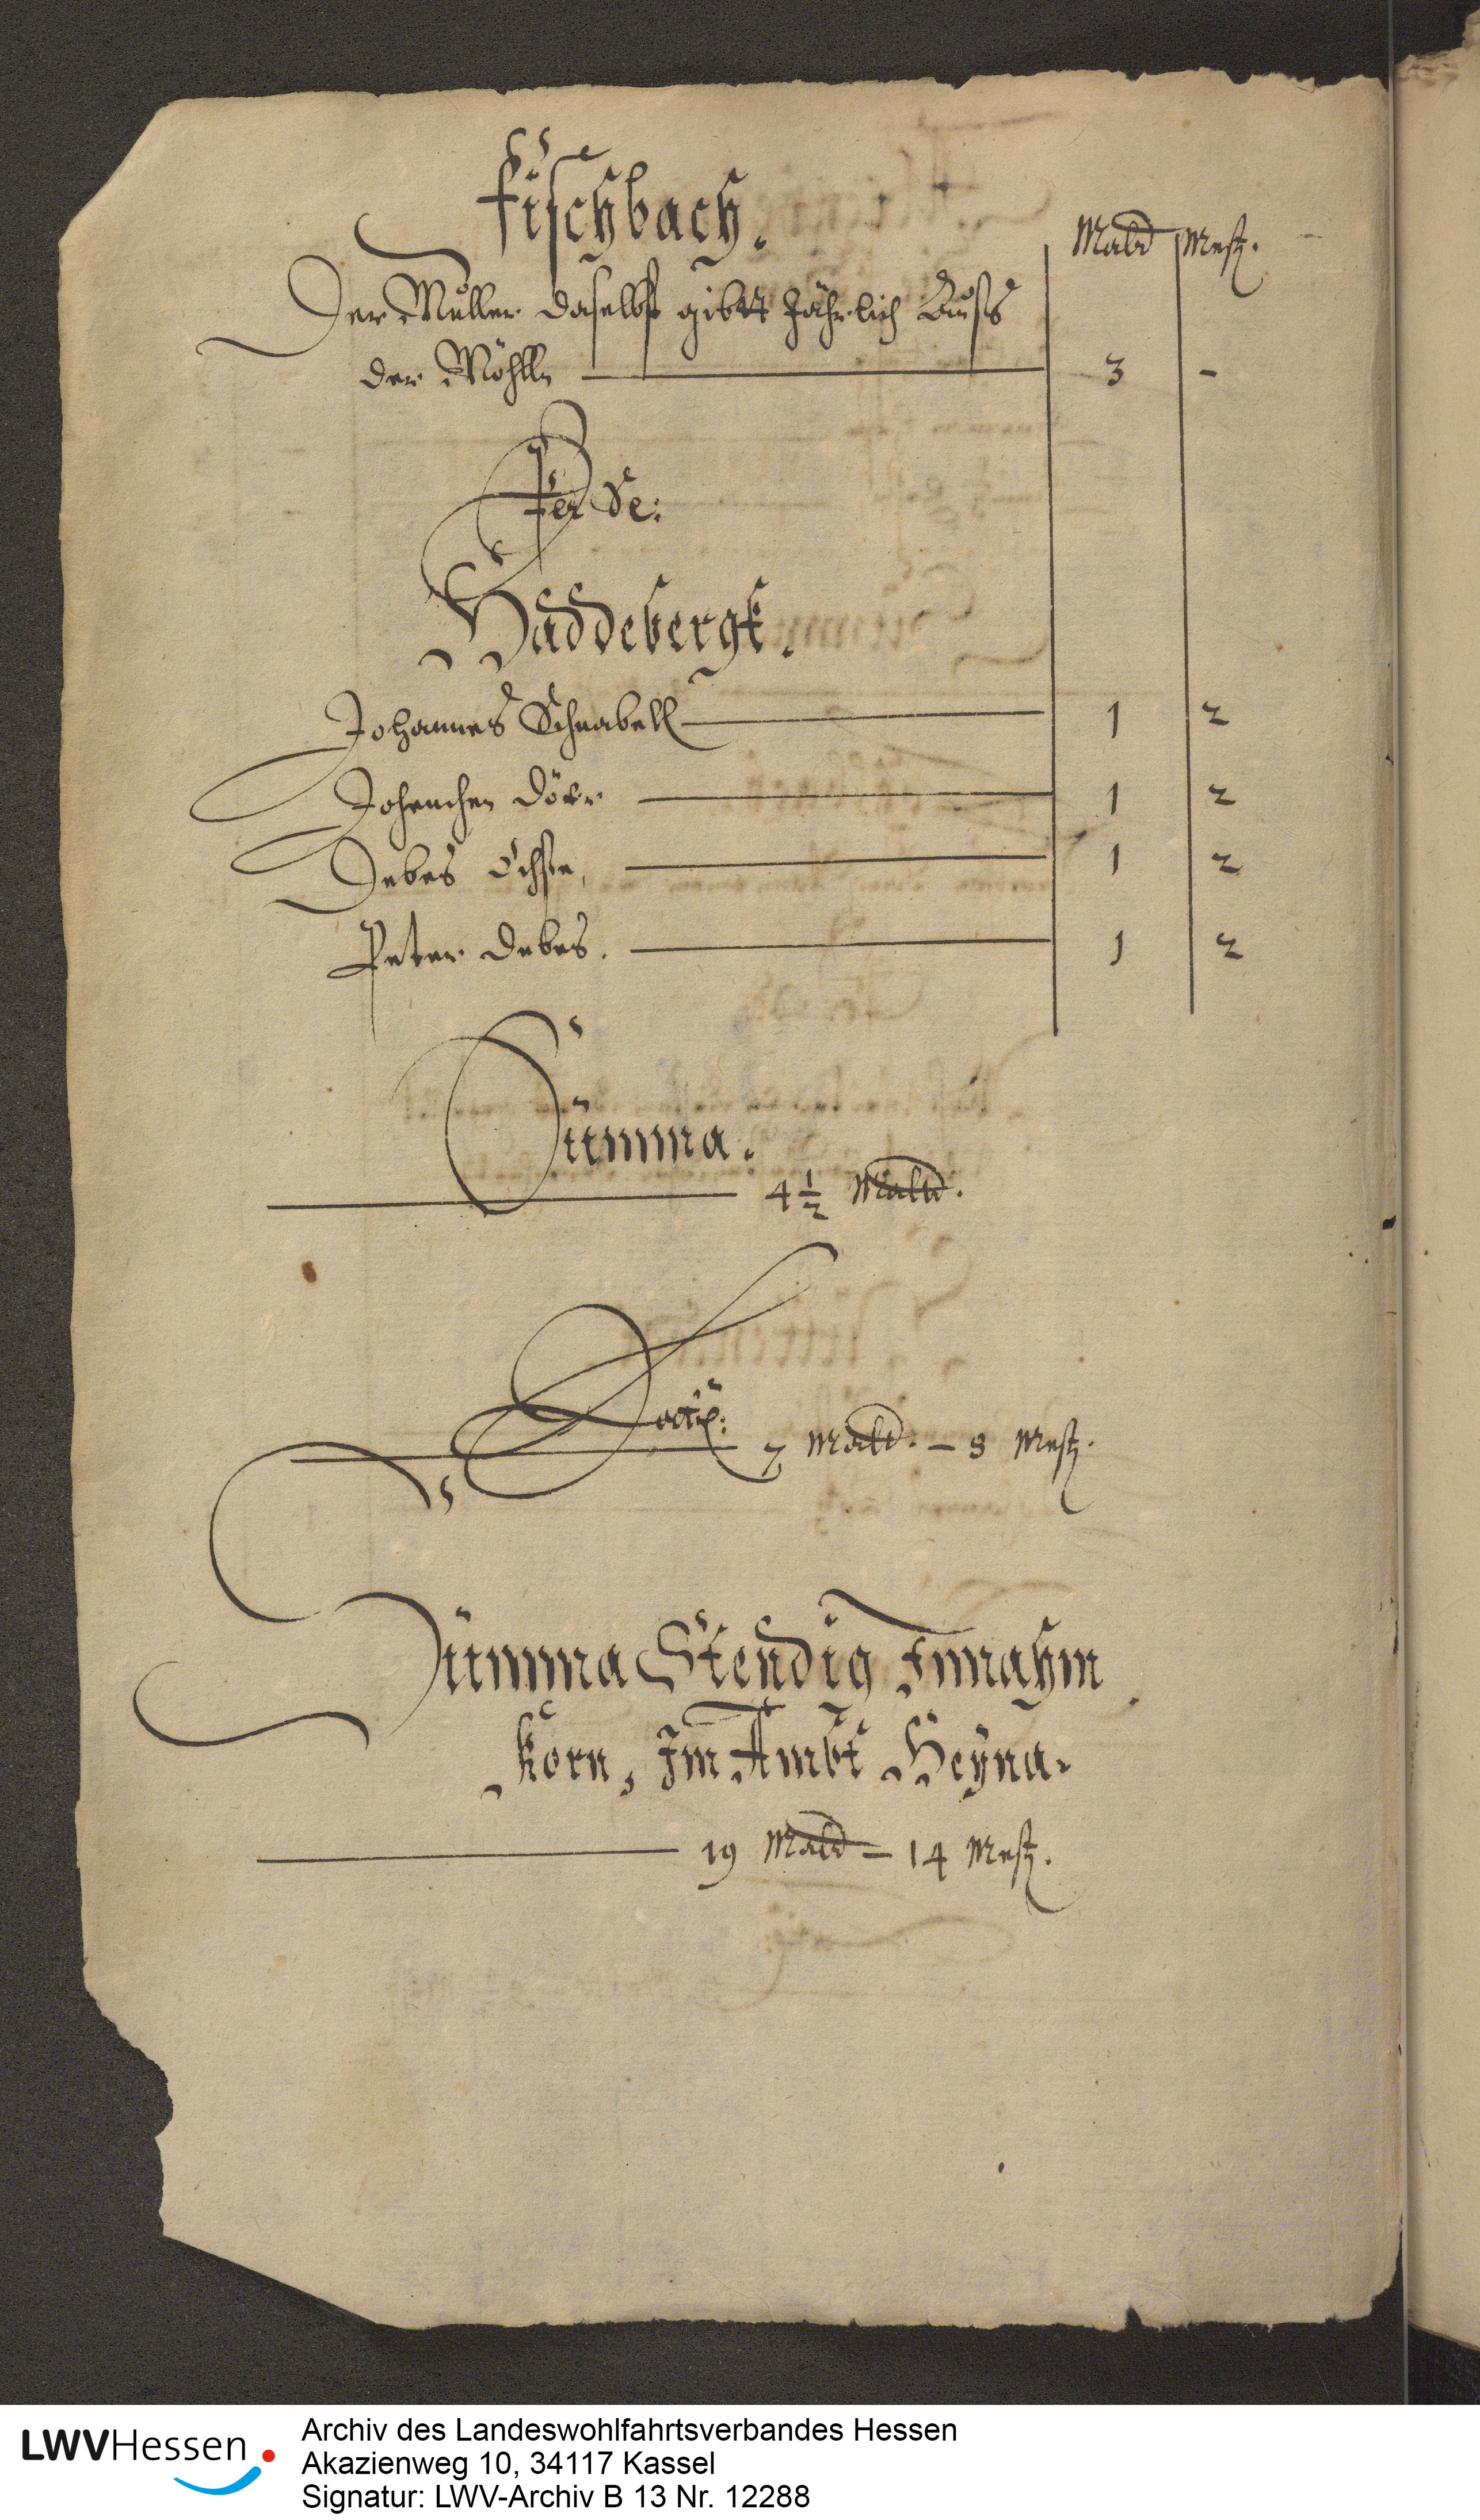 Fischbach.
Mald Mesz.
Der Müller daselbst gibtt Jährlich Auss
der Möhlln 3 -
Per Se:
Haddebergk.
Johannes Schnabell 1 2
Johenchen Dörr 1 2
Debes Ochse, 1 2
Peter Debes. 1 2
Summa.
4 1/2 Mald.
7 Mald. - 8 Mesz.
Summa Stendig Innahm
Korn, Im Ambt Heyna.
19 Mald - 14 Mesz.
LWVHessen
Archiv des Landeswohlfahrtsverbandes Hessen
Akazienweg 10, 34117 Kassel
Signatur: LWV-Archiv B 13 Nr. 12288